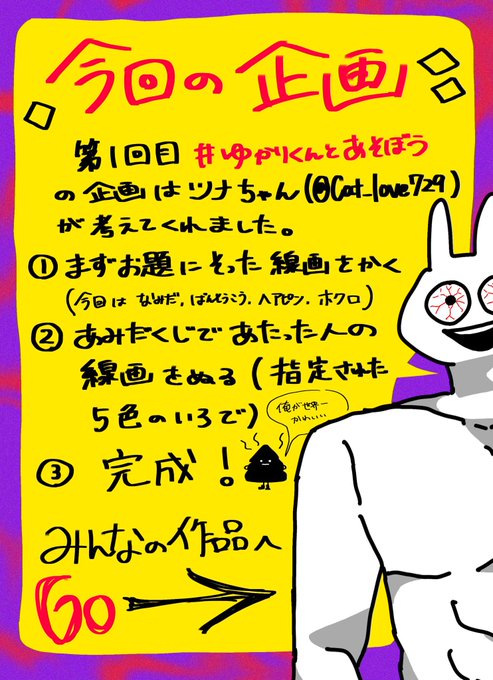 今回の企画
第1回目 #ゆかりくんとあそぼう
の企画はツナちゃん(@Cat_love729)
が考えてくれました。
①まずお題にそった線画をかく
(今回は なみだ, ばんそうこう, ヘアピン, ホクロ)
②あみだくじであたった人の
線画をぬる(指定された
5色のいろで)
俺が世界一
かわいい…
③ 完成!
みんなの作品へ
GO